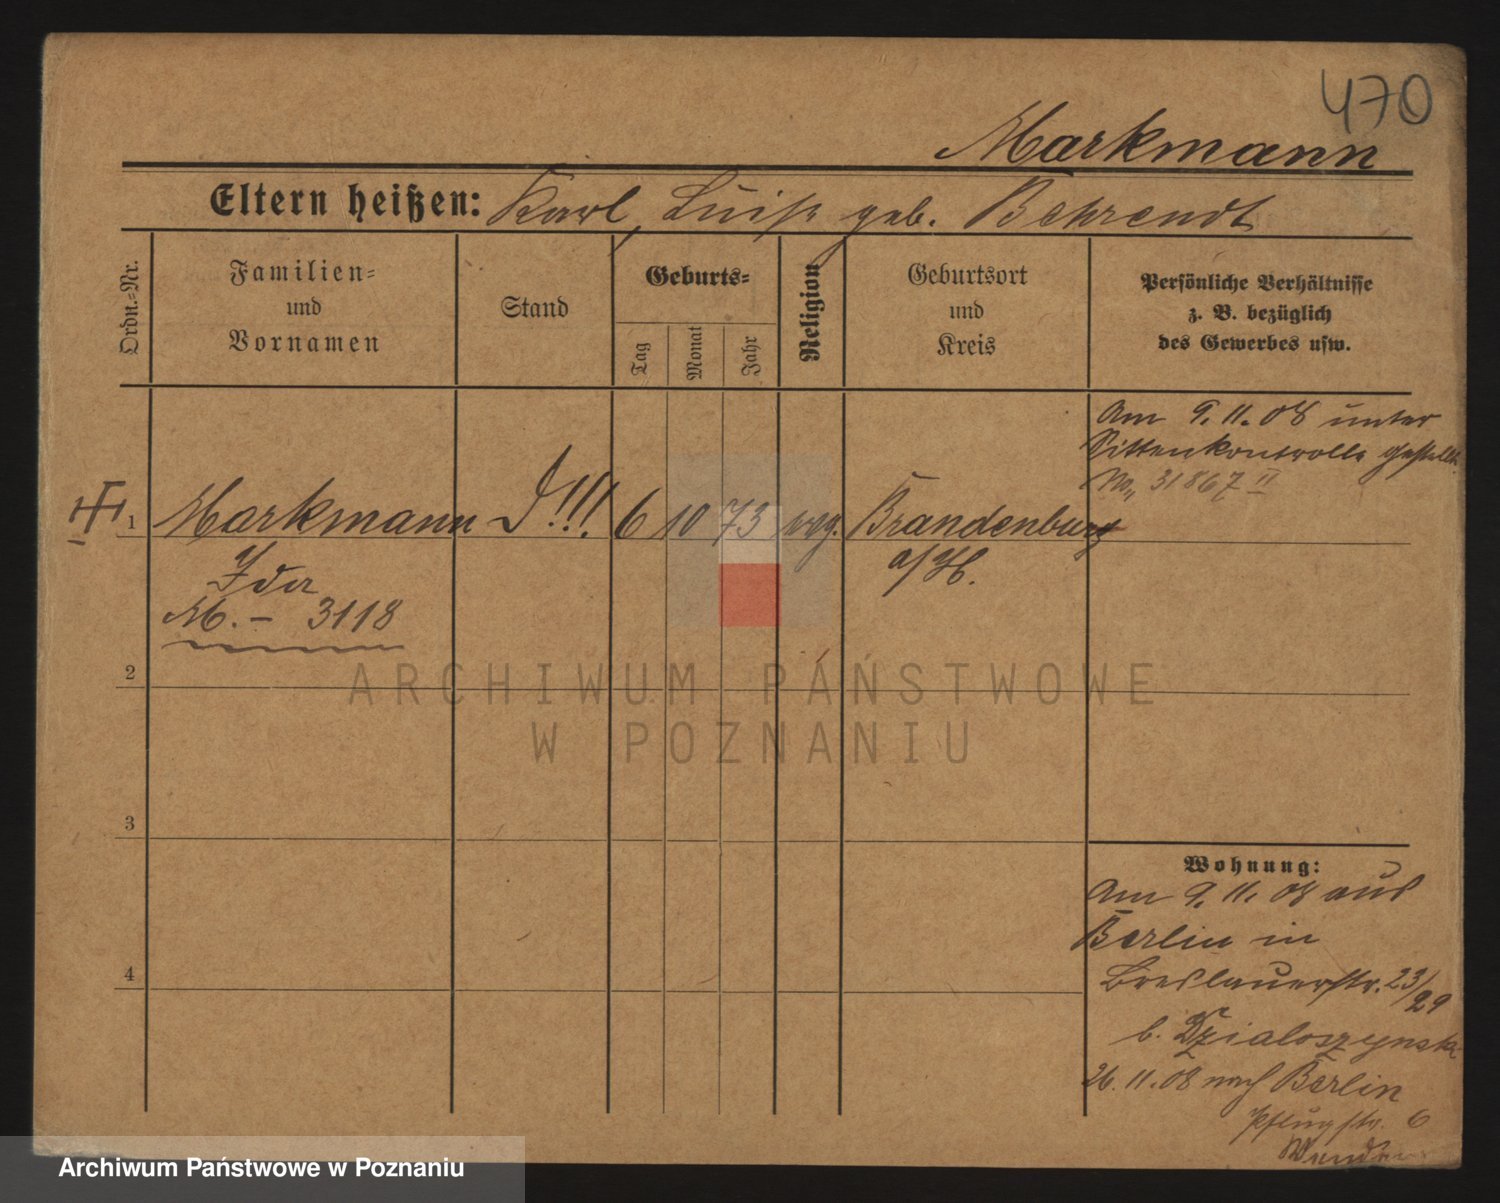 470
Markmann
Eltern heißen: Karl, Luise geb. Behrendt
Ordn.=Nr.
Familien=
und
Vornamen
Stand
Geburts=
Tag
Monat
Jahr
Religion
Geburtsort
und
Kreis
Persönliche Verhältnisse
z. B. bezüglich
des Gewerbes usw.
Am 9.11.08 unter
Sittenkontrolle gestellt.
No. 31867 II
1 Markmann !!! 6 10 73 evg. Brandenburg
Ida a/H.
M. - 3118
2
3
4
Wohnung:
Am 9.11.08 aus
Berlin in
Breslauerstr. 23/29
b. Dzialoszynska
26.11.08 nach Berlin
Pflugstr. 6
ARCHIWUM PAŃSTWOWE
W POZNANIU
Archiwum Państwowe w Poznaniu